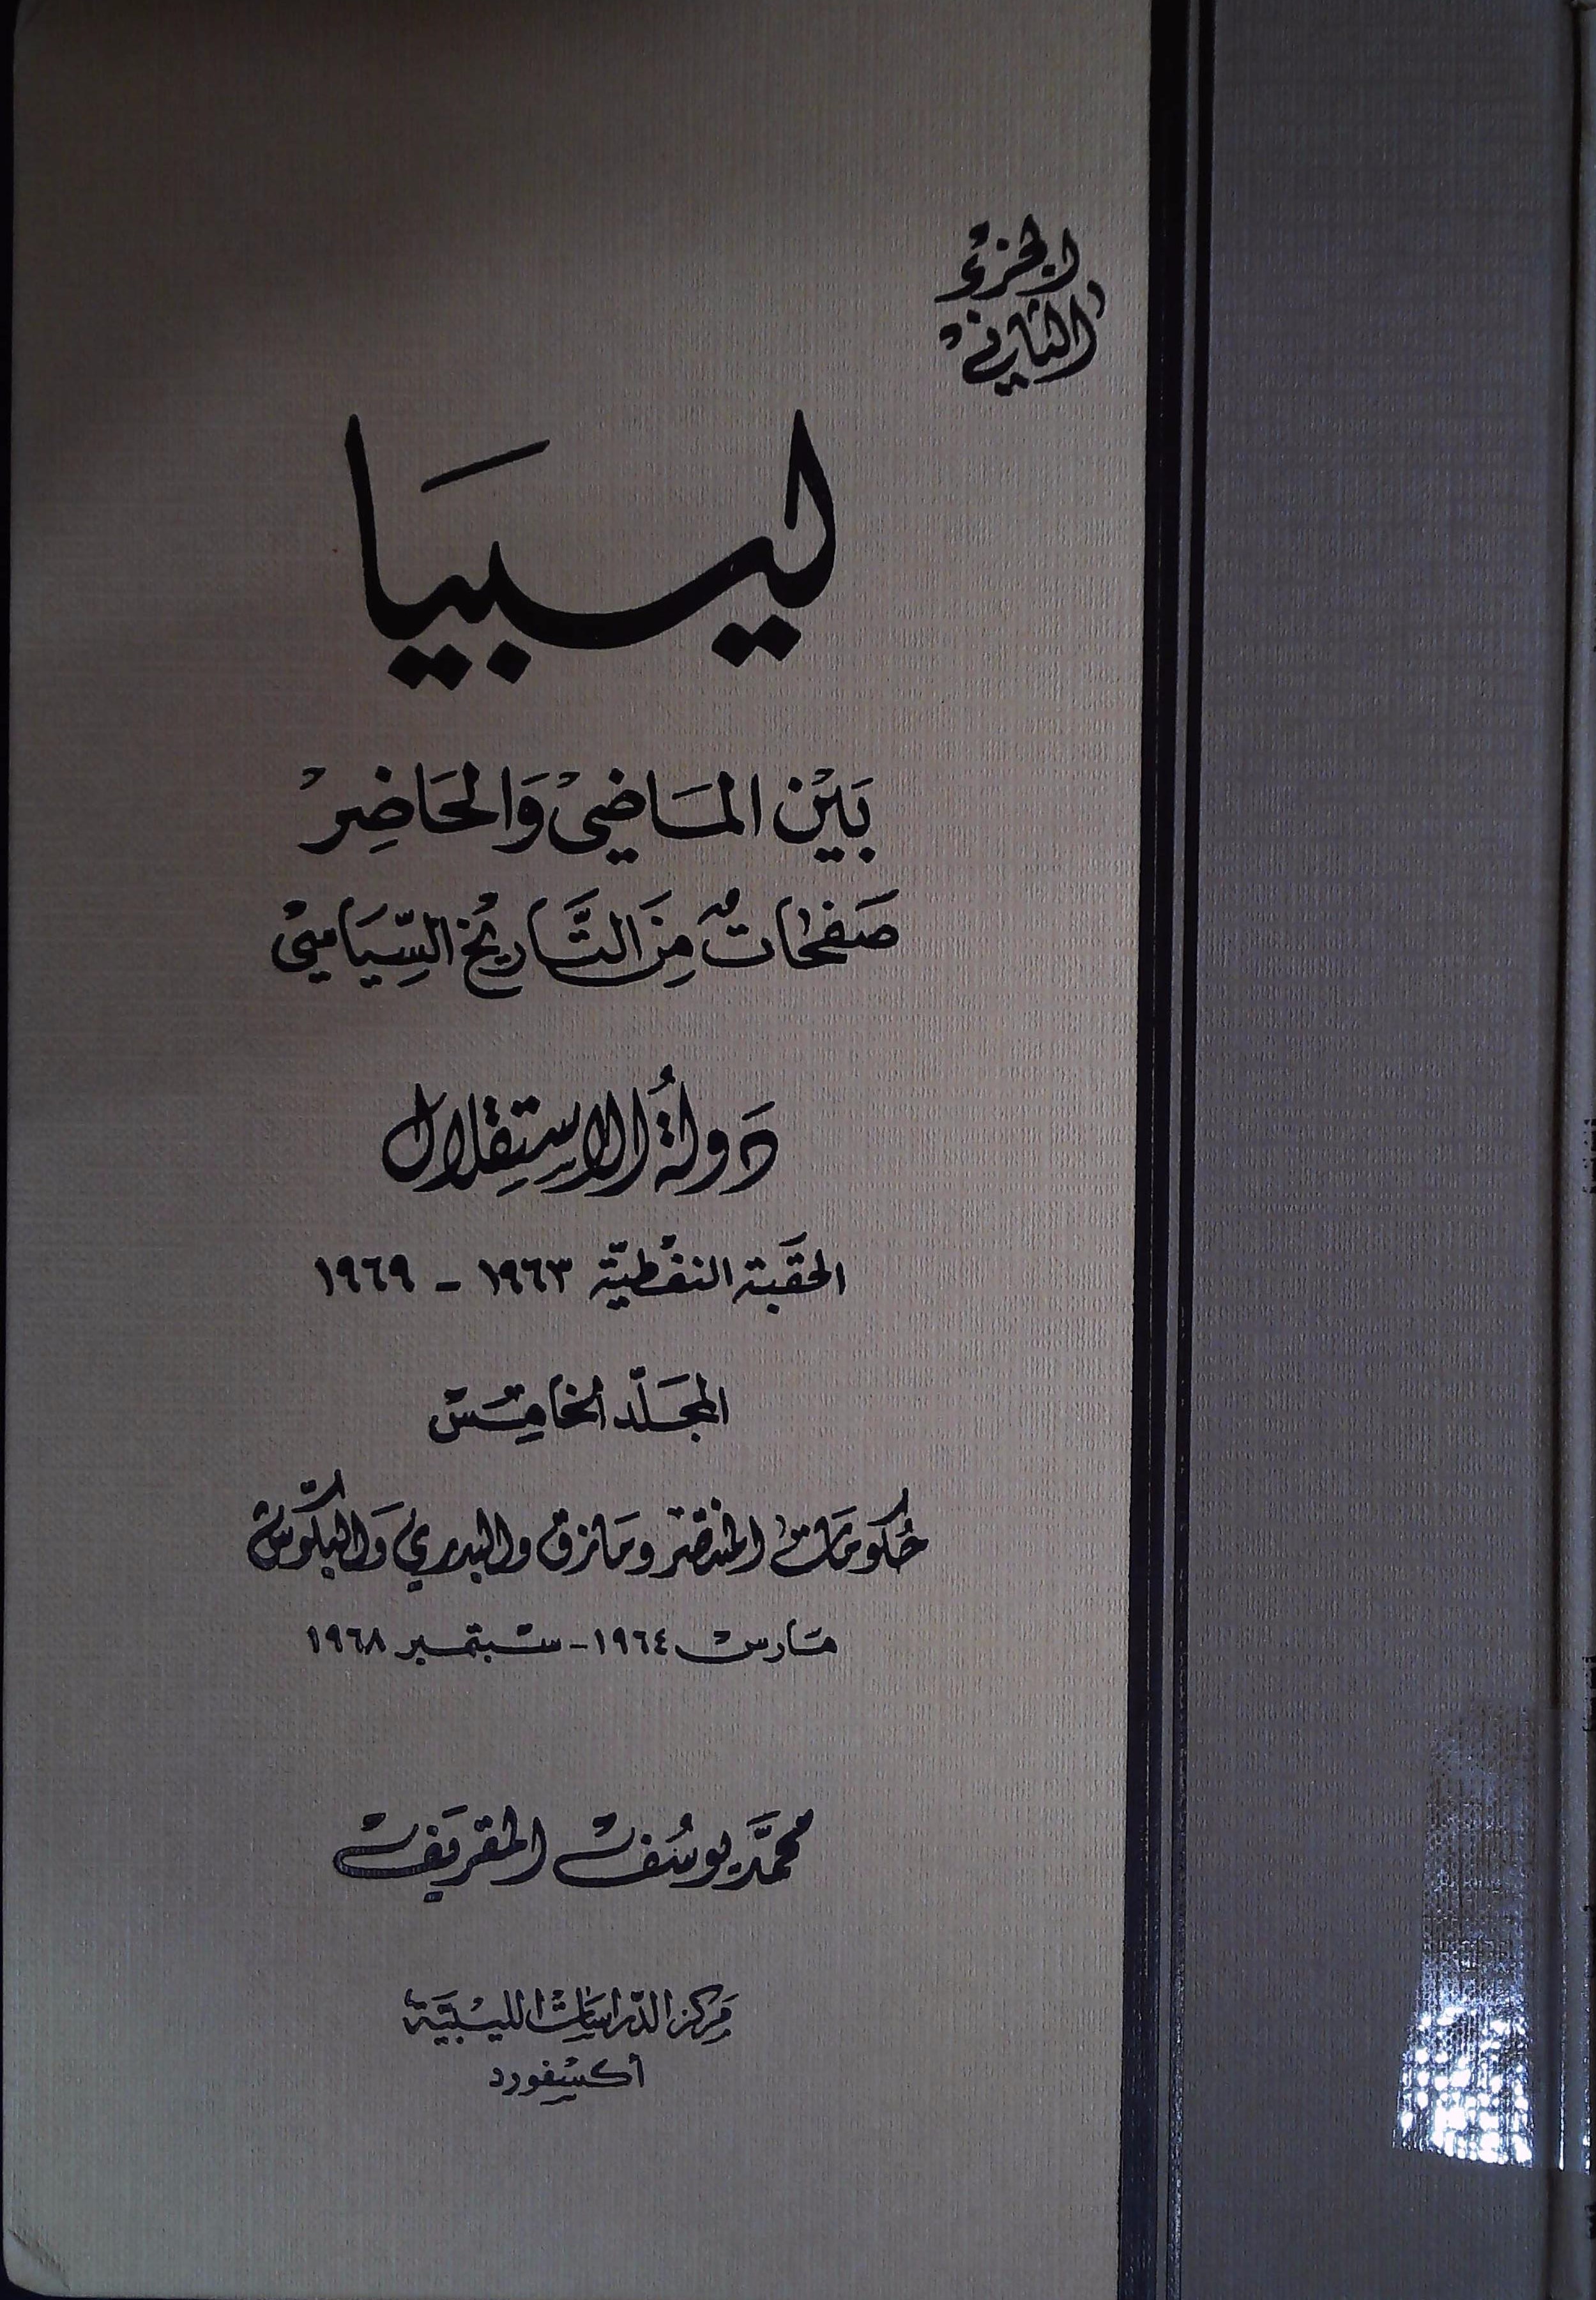 الجزء
الثاني
ليبيا
بَيْن المَاضِيْ وَالحَاضِرْ
صَفحَاتٌ مِنَ التَّاريْخ السِّيَاسِيْ
دَولةُ الاستِقلال
الحقَبة النفْطيّة ١٩٦٣ - ١٩٦٩
المجَلّد الخامِسْ
حُكومَات المنتصِر ومَازق والبدري وَالبكّوش
مَارسْ ١٩٦٤ - سبتمبر ١٩٦٨
محمَّد يوسُفْ المقريَفْ
مَركز الدّراسَاتْ الليْبيَّة
أكسْفورد